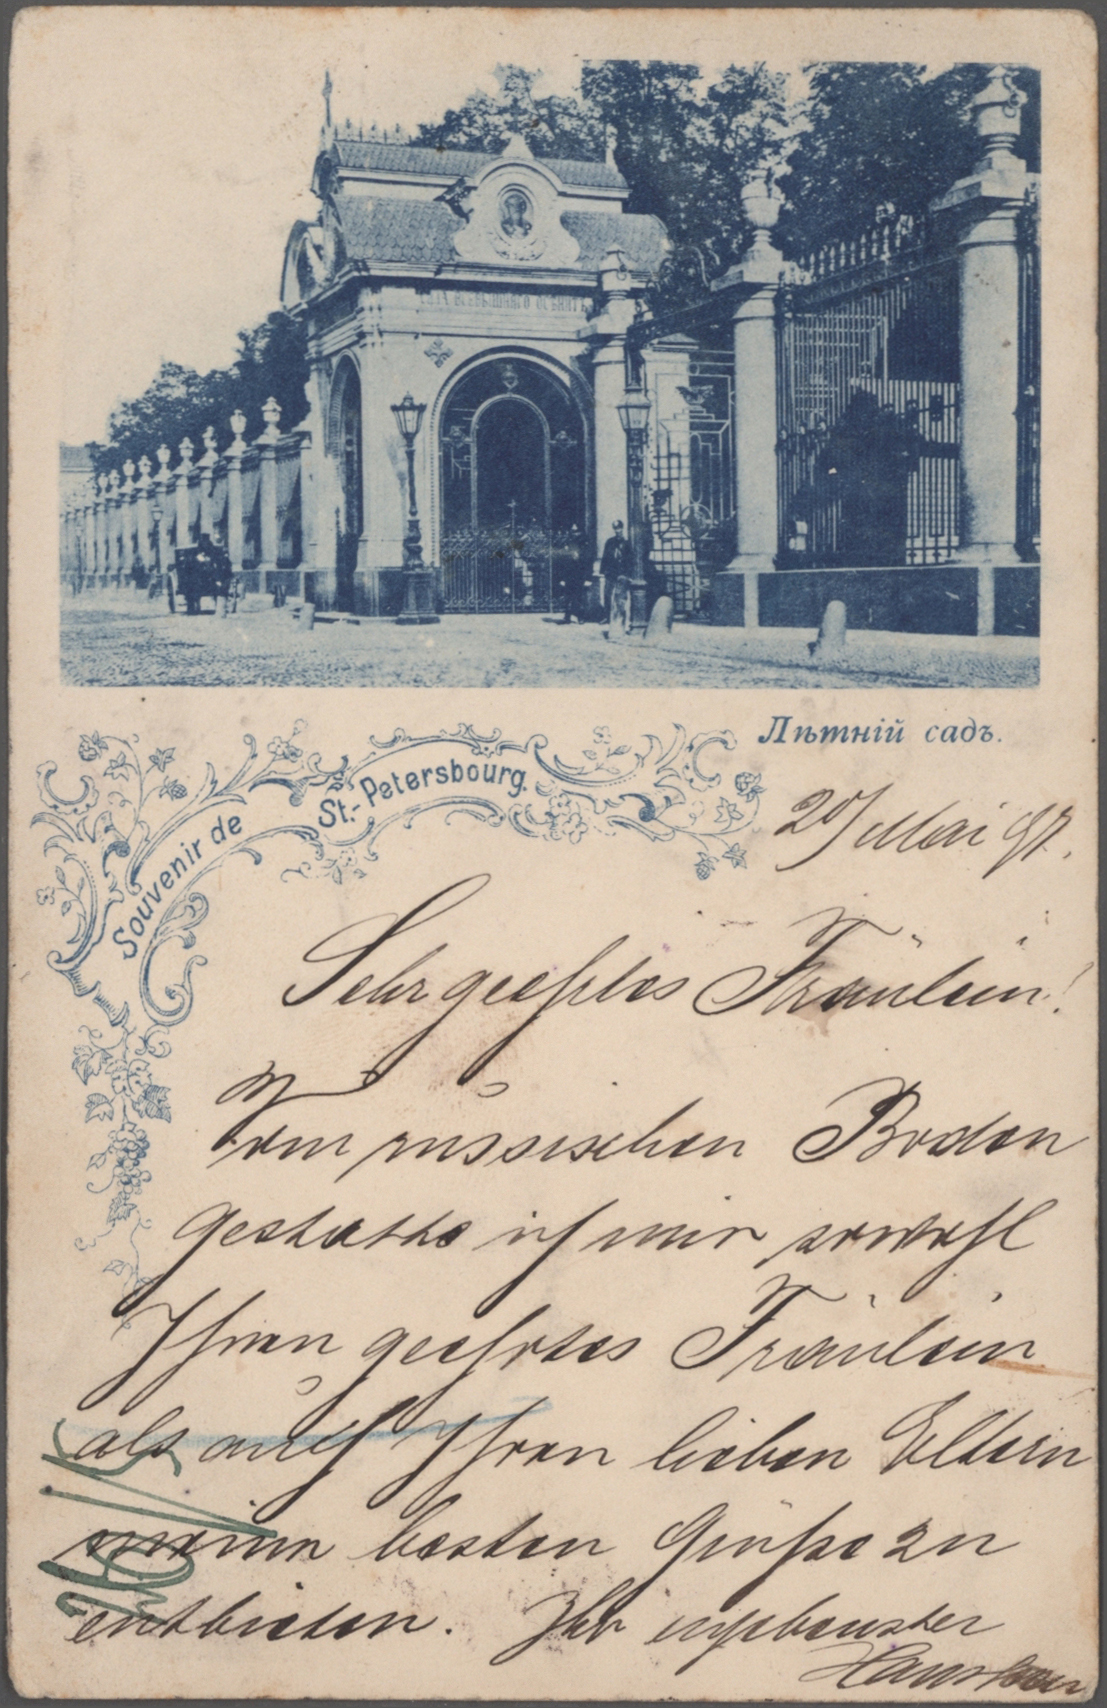 ВСЕВЫШНЯГО ОСѢНИТЪ
Лѣтній садъ.
Souvenir de St.-Petersbourg.
20/ Mai 97.
Sehr geehrtes Fräulein!
Vom russischen Boden
gestatte ich mir sowohl
Ihnen geehrtes Fräulein
als auch Ihren lieben Eltern
meine besten Grüße zu
entbieten. Ihr ergebenster